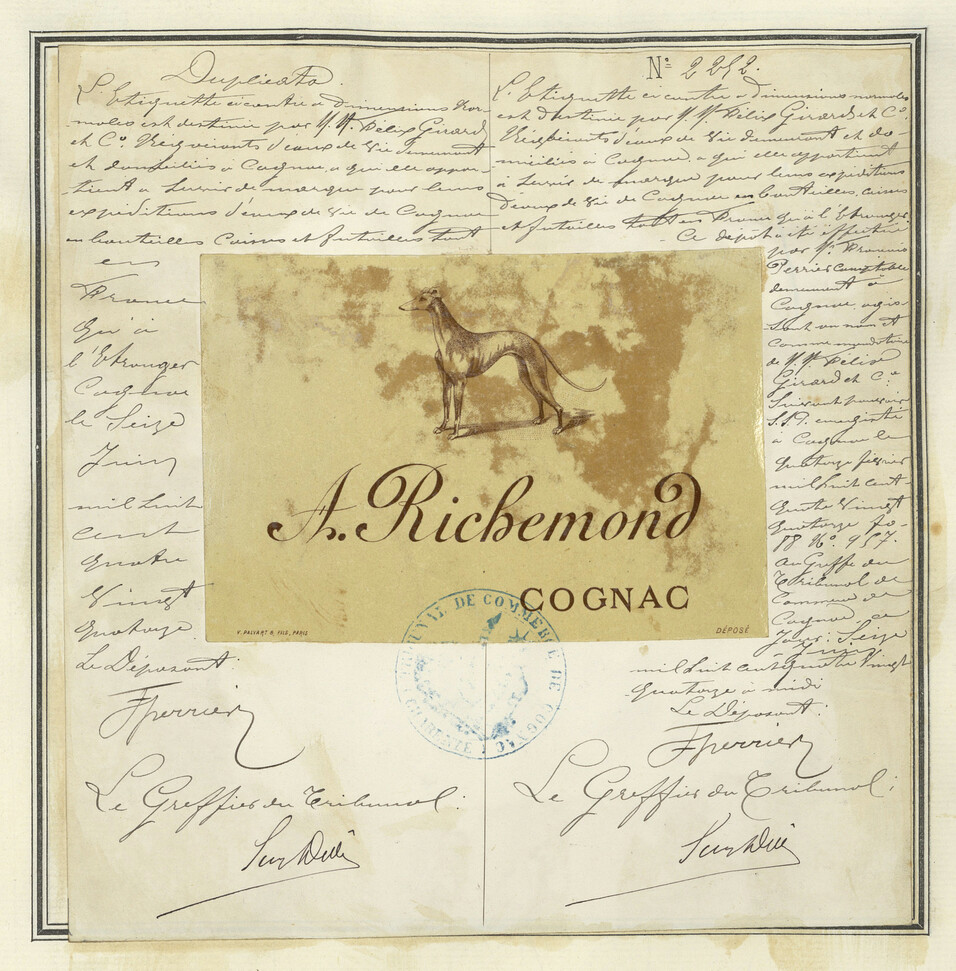 Duplicata.
L'Etiquette ci contre à dimensions nor-
males est destinée par M.M. Félix Girard
et Co. Négociants d'eaux de vie demeurant
et domiciliés à Cognac, à qui elle appar-
tient à servir de marque pour leurs
expéditions d'eaux de vie de Cognac
en bouteilles Caisses et futailles tant
en
France
qu'à
l'Etranger
Cognac
le Seize
Juin
mil huit
cent
quatre
Vingt
quatorze.
Le Déposant:
Fperrier
Le Greffier du Tribunal:
Nº 2252.
L'Etiquette ci contre à dimensions normales
est destinée par M.M. Félix Girard et Co.
Négociants d'eaux de vie demeurant et do-
miciliés à Cognac, à qui elle appartient
à servir de marque pour leurs expéditions
d'eaux de vie de Cognac en bouteilles, caisses
et futailles tant en France qu'à l'Etranger
Ce dépôt a été effectué
par Mr. Francois
Perrier comptable
demeurant à
Cognac agis-
sant au nom et
comme mandataire
de M.M. Félix
Girard et Co.
suivant pouvoir
S.S.P. enregistré
à Cognac le
quatorze février
mil huit cent
quatre Vingt
quatorze fo-
88 No. 957.
Au Greffe du
Tribunal de
Commerce de
Cognac ce
jour: Seize
Juin
mil huit cent quatre Vingt
quatorze à midi
Le Déposant:
Fperrier
Le Greffier du Tribunal:
A. Richemond
COGNAC
F. PALYART & FILS, PARIS
DÉPOSÉ
TRIBUNAL DE COMMERCE DE COGNAC
CHARENTE